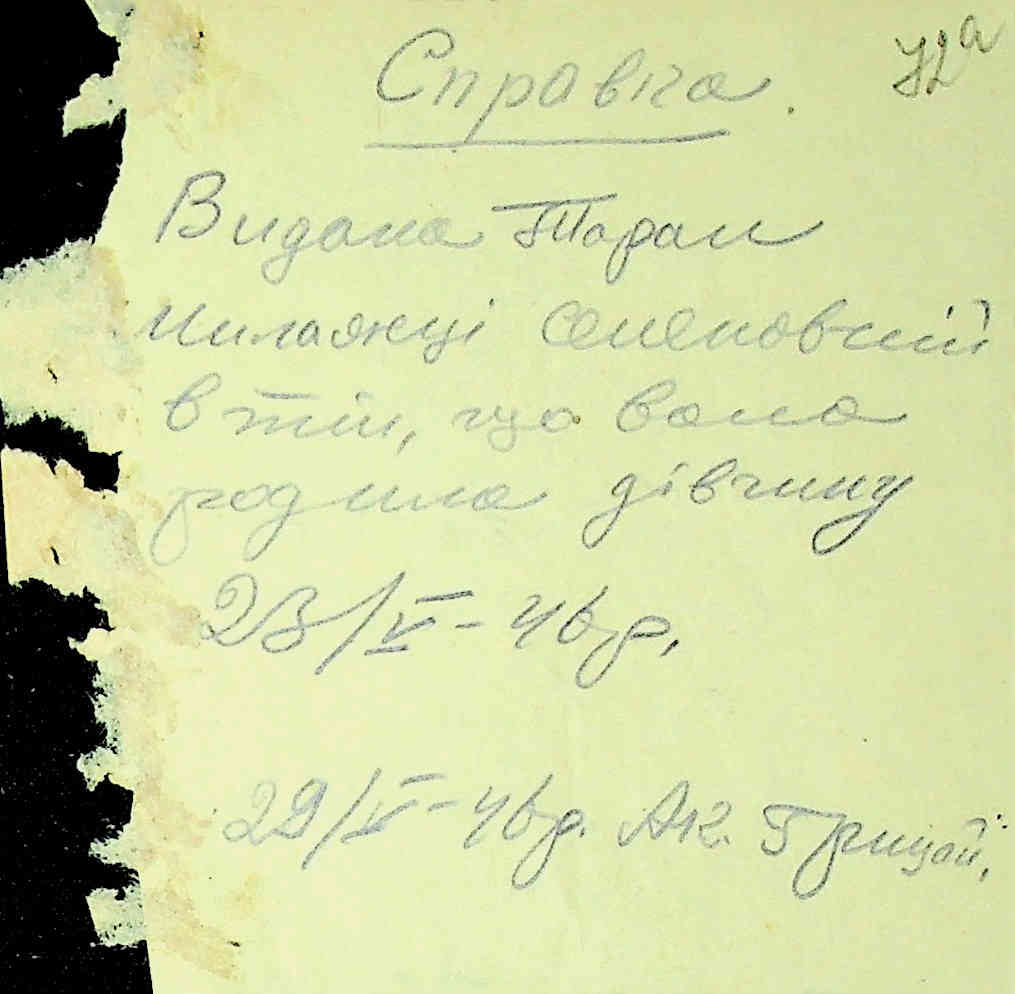 72а
Справка.
Видана Таран
Милажці Семеновній
в тім, що вона
родила дівчину
23/V - 46 р.
29/V - 46 р. Ак. Грицай.